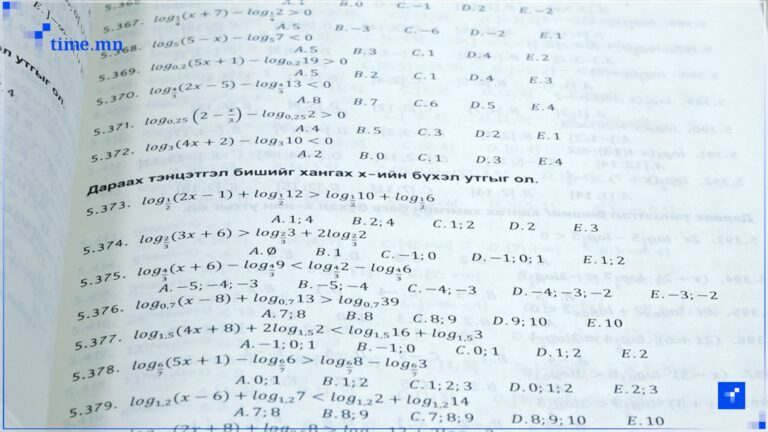 time.mn
А. 1 В. 0 С. −1 D. 2 Е. −2
5.367. log₁(x + 7) − log₁2 > 0
А. 5 В. −3 С. −6 D. −2 Е. 1
5.368. log₅(5 − x) − log₅7 < 0
А. 5 В. 3 С. 1 D. 4 Е. 2
5.369. log₀,₂(5x + 1) − log₀,₂19 > 0
А. 5 В. 2 С. 1 D. 4 Е. 3
5.370. log₄/₃(2x − 5) − log₄/₃13 < 0
А. 8 В. 7 С. 6 D. 5 Е. 4
5.371. log₀,₂₅(2 − x/3) − log₀,₂₅2 > 0
А. 4 В. 5 С. 3 D. 2 Е. 1
5.372. log₃(4x + 2) − log₃10 < 0
А. 2 В. 0 С. 1 D. 3 Е. 4
Дараах тэнцэтгэл бишийг хангах x−ийн бүхэл утгыг ол.
5.373. log₁/₂(2x − 1) + log₁/₂12 > log₁/₂10 + log₁/₂6
А. 1; 4 В. 2; 4 С. 1; 2 D. 2 Е. 3
5.374. log₂/₃(3x + 6) > log₂/₃3 + 2log₂/₃2
А. Ø В. 1 С. −1; 0 D. −1; 0; 1 Е. 1; 2
5.375. log₄/₃(x + 6) − log₄/₃9 < log₄/₃2 − log₄/₃6
А. −5; −4; −3 В. −5; −4 С. −4; −3 D. −4; −3; −2 Е. −3; −2
5.376. log₀,₇(x − 8) + log₀,₇13 > log₀,₇39
А. 7; 8 В. 8 С. 8; 9 D. 9; 10 Е. 10
5.377. log₁,₅(4x + 8) + 2log₁,₅2 < log₁,₅16 + log₁,₅3
А. −1; 0; 1 В. −1; 0 С. 0; 1 D. 1; 2 Е. 2
5.378. log₆/₇(5x + 1) − log₆/₇6 > log₆/₇8 − log₆/₇3
А. 0; 1 В. 1; 2 С. 1; 2; 3 D. 0; 1; 2 Е. 2; 3
5.379. log₁,₂(x − 6) + log₁,₂7 < log₁,₂2 + log₁,₂14
А. 7; 8 В. 8; 9 С. 7; 8; 9 D. 8; 9; 10 Е. 10